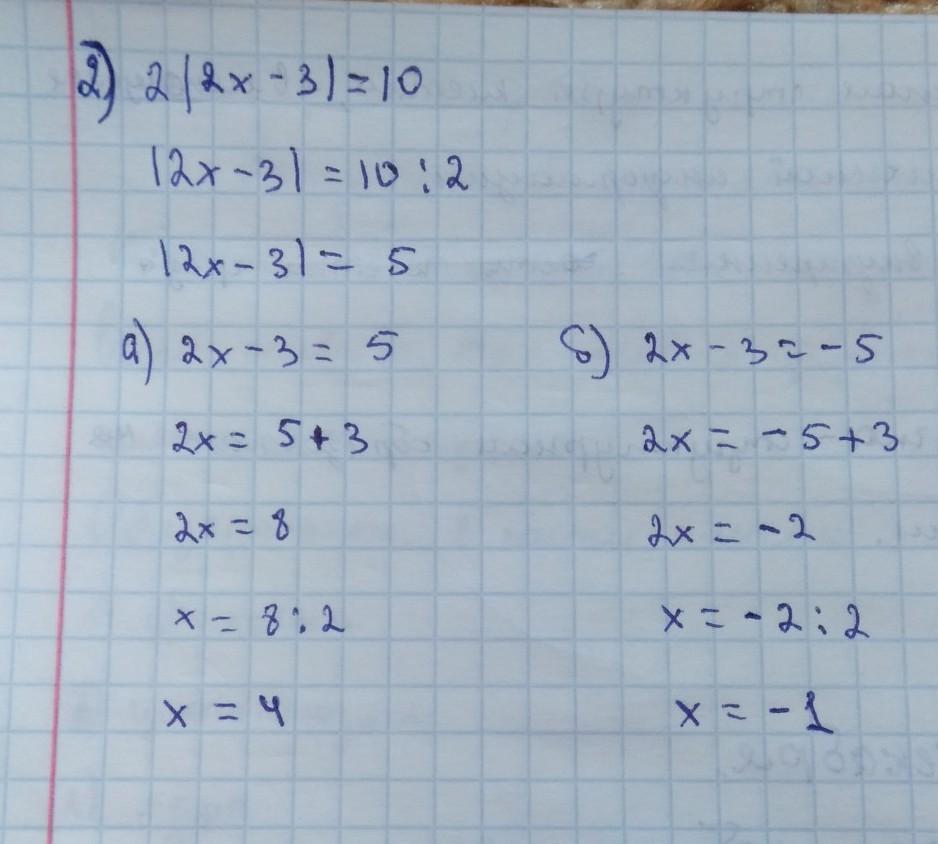 2) 2|2x-3|=10
|2x-3|=10:2
|2x-3|= 5
а) 2x-3= 5
2x= 5+3
2x=8
x= 8:2
x=4
б) 2x-3=-5
2x=-5+3
2x=-2
x=-2:2
x=-1